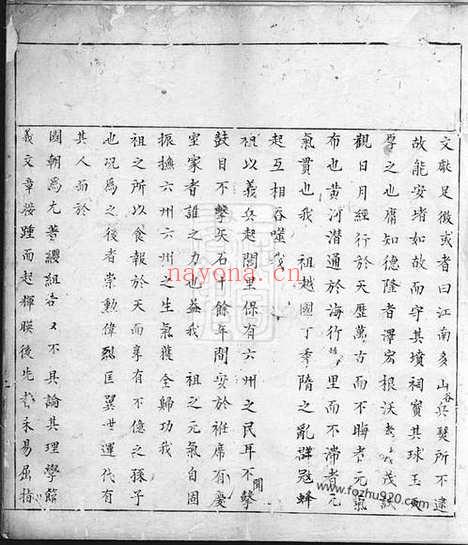 文獻足徵或者曰江南多山谷兵燹所不逮
故能安堵如故而守其墳祠寶其球玉
厚之也庸知德隆者澤宏根沃者茂
觀日月經行於天歷萬古而不晦者元氣
布也黄河潛通於海行里而不滯者元
氣貫也我 祖越國丁季隋之亂群冦蜂
起互相吞噬我
祖以義兵起閭里保有六州之民耳不聞鼙
鼓目不擊矢石十餘年間安於袵席有慶
室家者誰之力也葢我 祖之元氣自固
振撫六州六州之生氣獲全歸功我
祖之所以食報於天而享有不億之孫子
也况爲之後者崇勲偉烈匡翼世運代有
其人而於
國朝爲尤著纓組 不具論其理學節
義文章接踵而起輝暎後先 未易屈指
nayona.cn
www.fozhu920.com